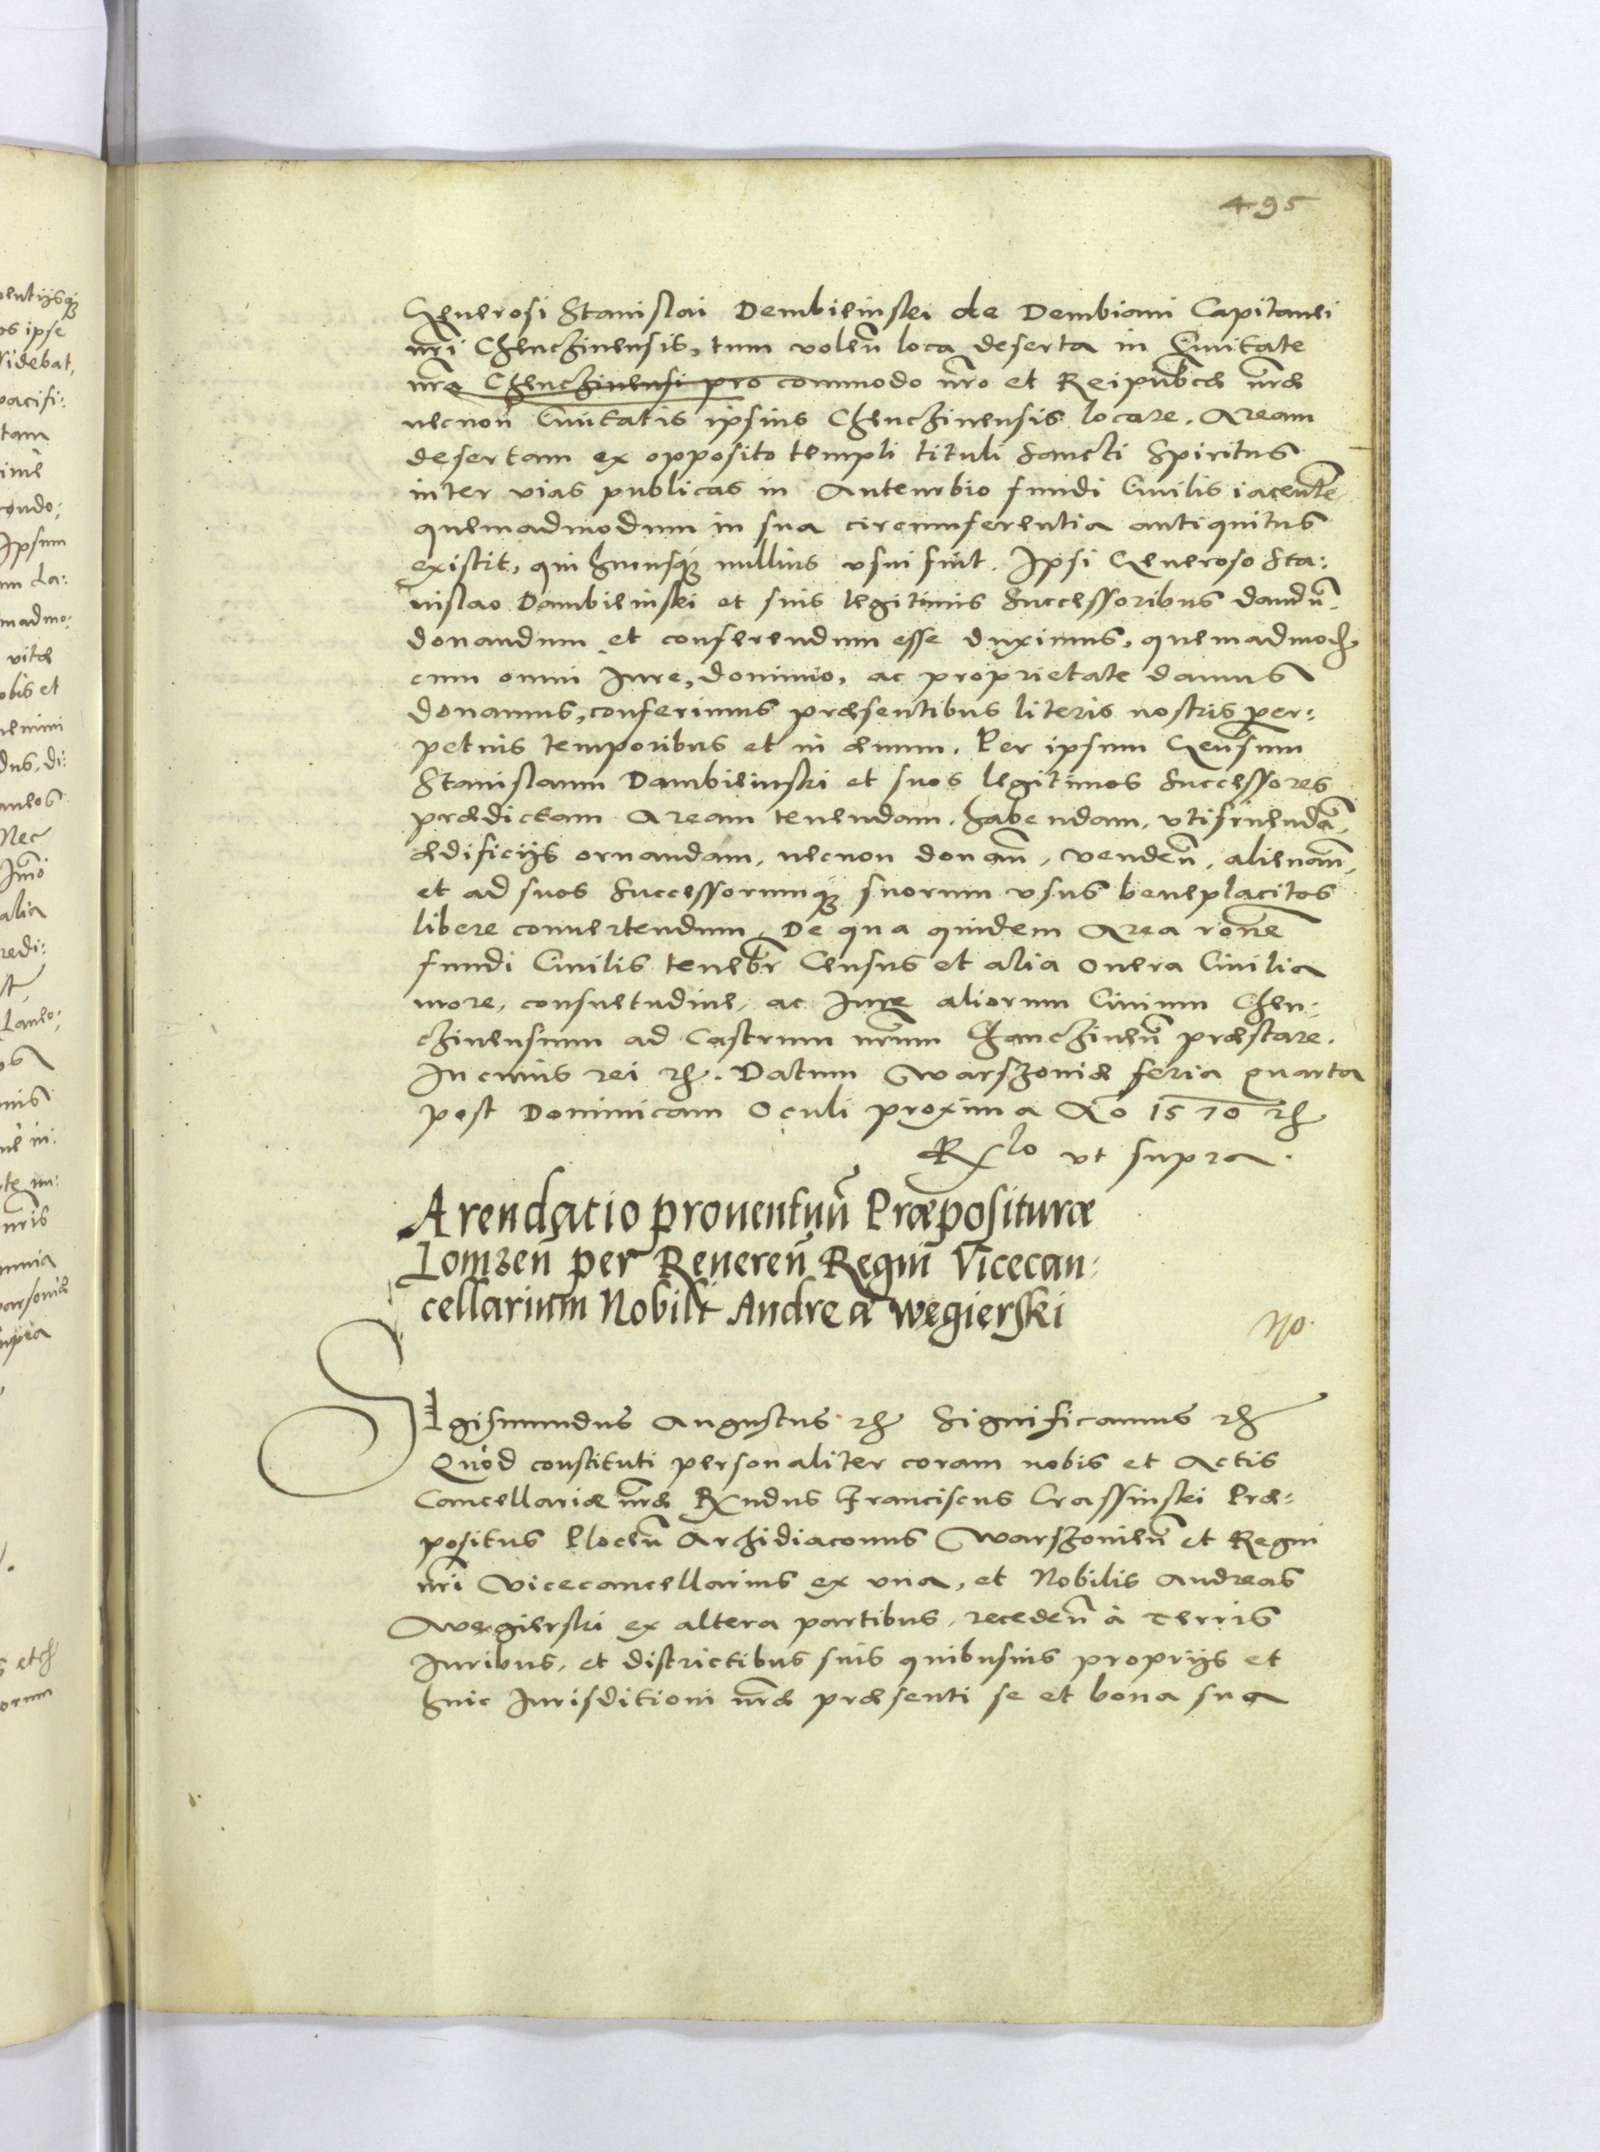 495
Generosi Stanislai Dembienski de Dembiani Capitanei
nr̃i Chenczinensis, tum volen̄ loca deserta in Ciuitate
nr̃a Chenczinensi pro commodo nr̃o et Reipub̃cæ nr̃æ
necnon Ciuitatis ipsius Chenczinensis locare. Aream
desertam ex opposito templi tituli Sancti Spiritus
inter vias publicas in Anteurbio fundi Ciuilis iacentē
quemadmodum in sua circumferentia antiquitus
existit, qui hucusq; nullius vsui fuit. Ipsi Generoso Sta:
nislao Dambienski et suis legitimis Successoribus dandū,
donandum et conferendum esse duximus, quemadmod
cum omni Iure, dominio, ac proprietate damus
donamus, conferimus præsentibus literis nostris per:
petuis temporibus et in æuum. Per ipsum Gen̄sum
Stanislaum Dambienski et suos legitimos Successores
prædictam Aream tenendam, habendam, vtifruendā,
ædificijs ornandam, necnon donan̄, venden̄, alienan̄,
et ad suos Successorumq; suorum vsus beneplacitos
libere conuertendum. De qua quidem Area rōne
fundi Ciuilis tenebr̄ Census et alia Onera Ciuilia
more, consuetudine, ac Iure aliorum Ciuium Chen:
czinensium ad Castrum nr̃um Chanczinen̄ præstare.
In cuius rei etc. Datum Warszouiæ feria quarta
post Dominicam Oculi proxima Aō 1570 etc
Rlo vt supra.
Arendatio prouentuū Præposituræ
Lomzen̄ per Reueren̄ Regni Vicecan:
cellarium Nobili Andreæ Wegierski
No.
SIgismundus Augustus etc Significamus etc
Quòd constituti personaliter coram nobis et Actis
Cancellariæ nr̃æ Rndus Franciscus Crassinski Præ:
positus Plocen̄ Archidiaconus Warszouien̄ et Regni
nr̃i Vicecancellarius ex vna, et Nobilis Andreas
Wegierski ex altera partibus, receden̄ à Terris
Iuribus, et districtibus suis quibusuis proprijs et
huic Iurisditioni nr̃æ præsenti se et bona sua